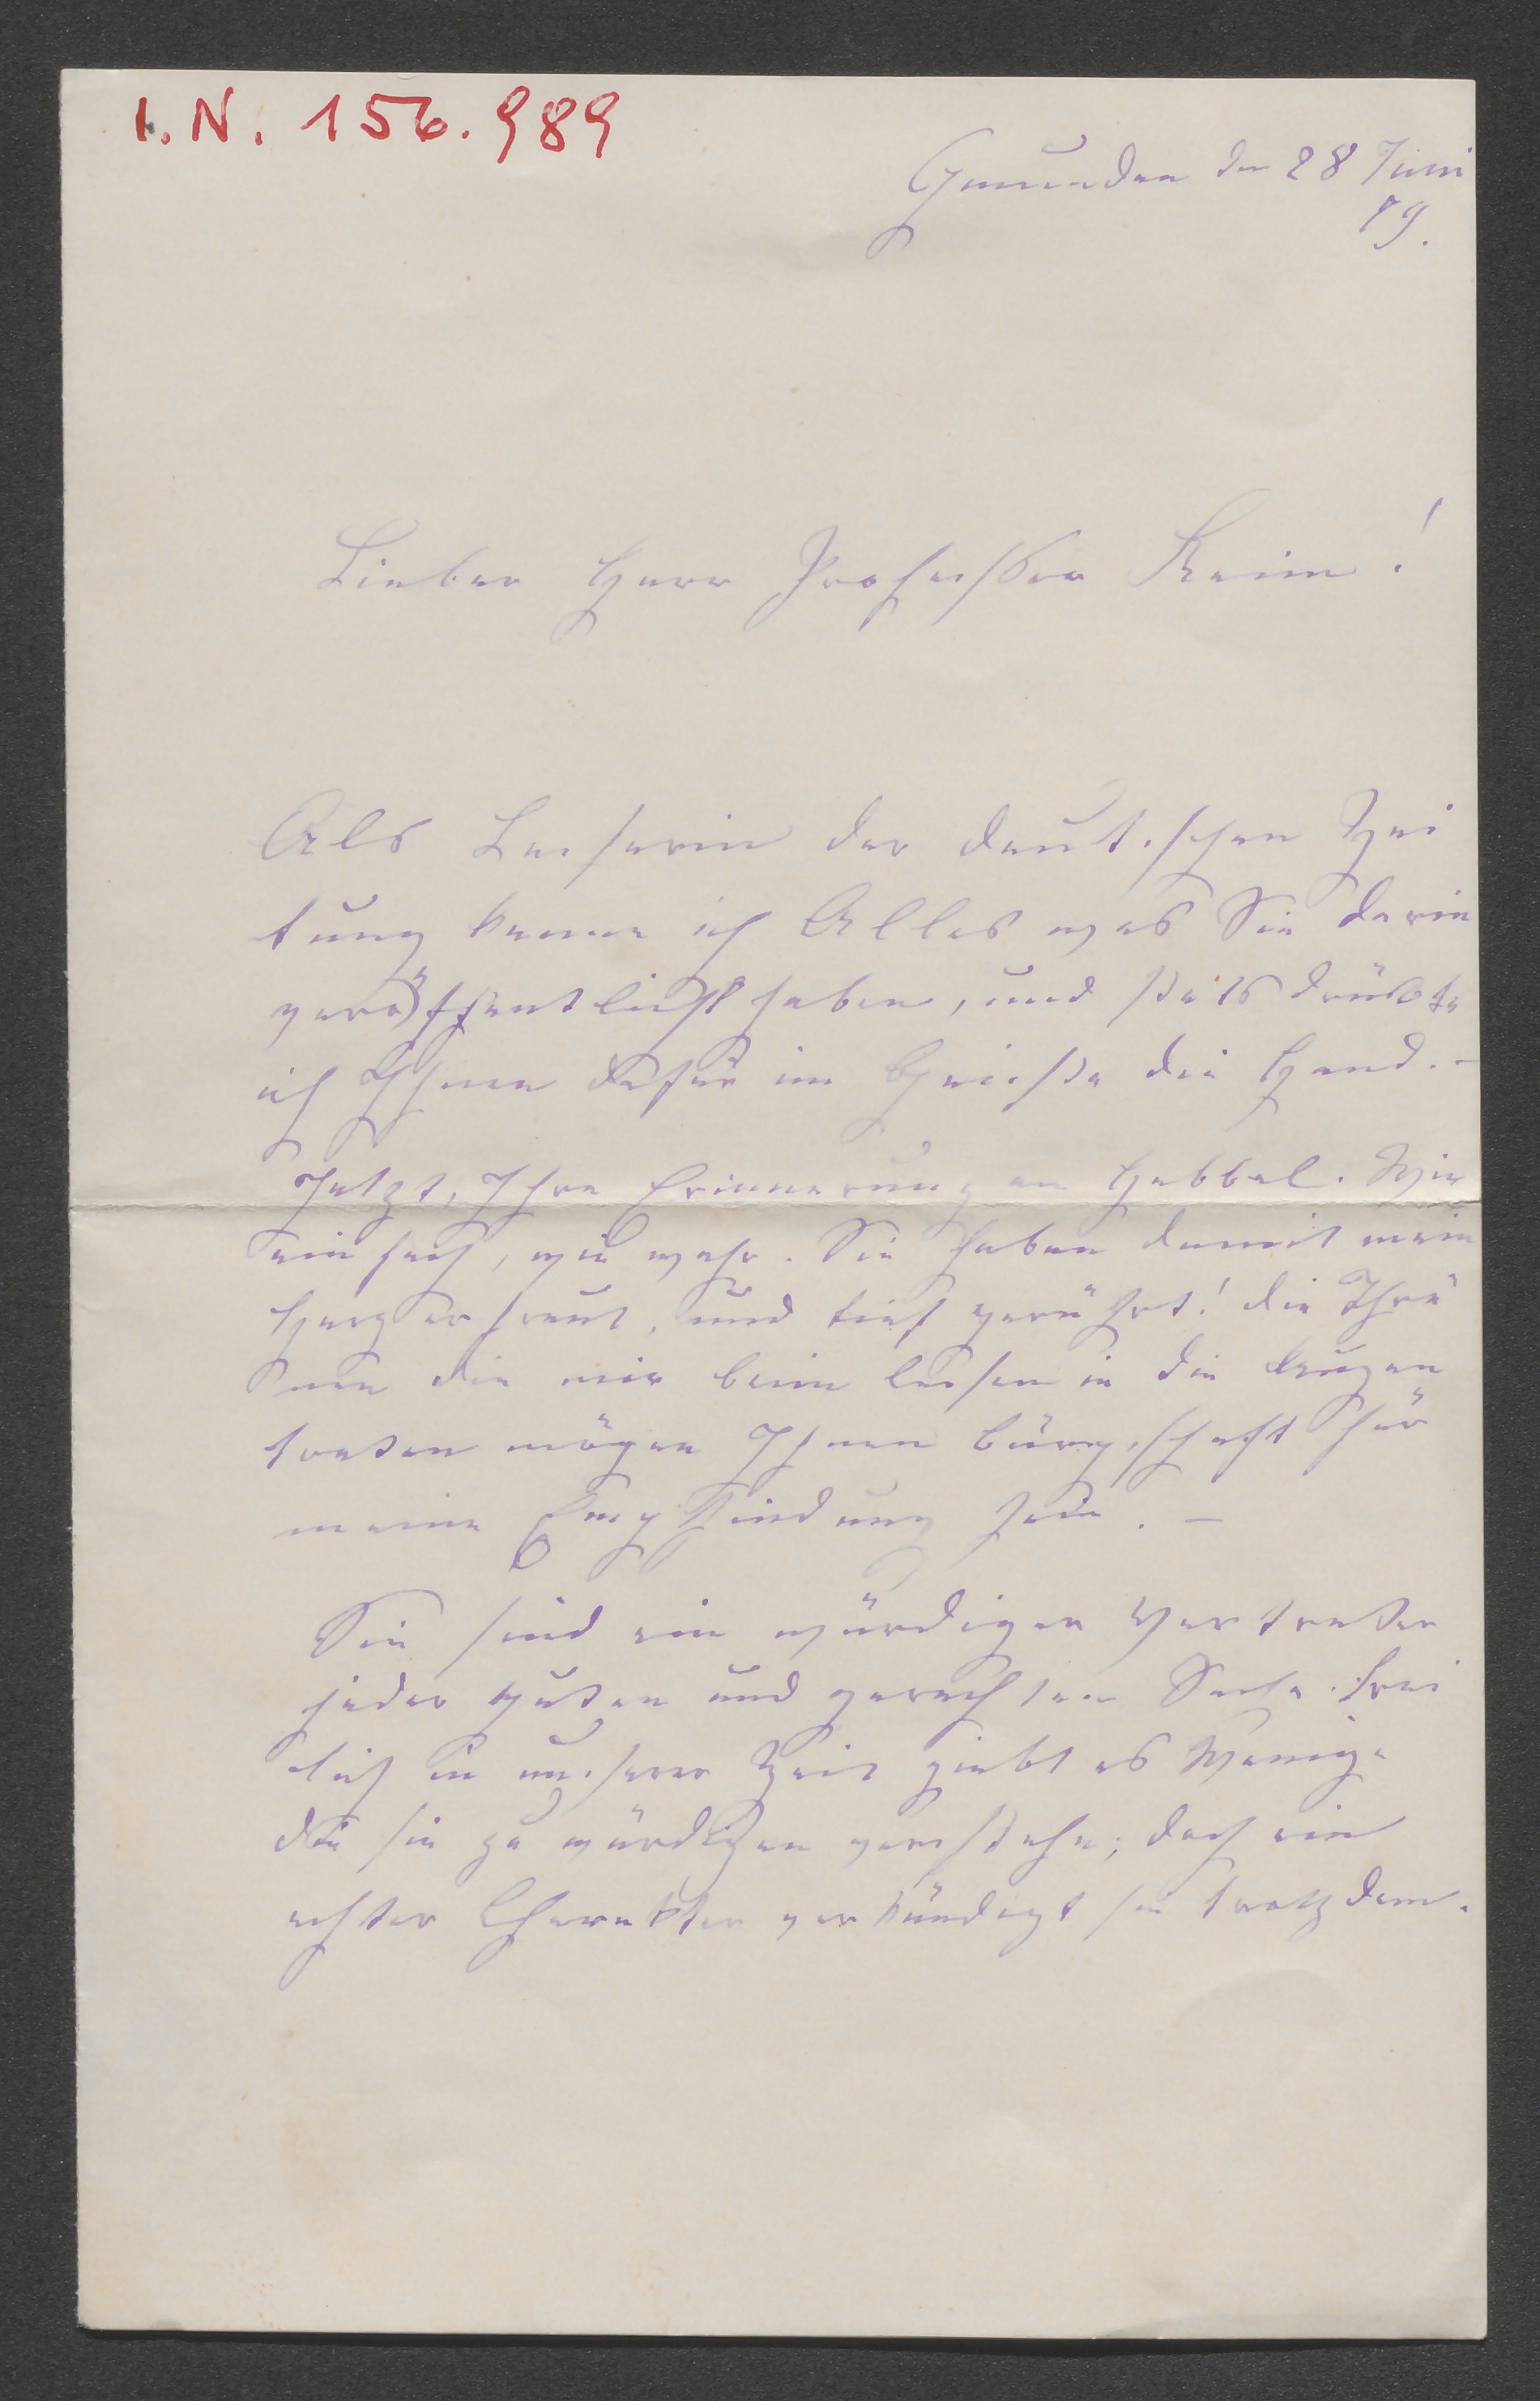 I.N. 156.989
Gmunden den 28 Juni
79.
Lieber Herr Professor Keim!
Als Leserin der deutschen Zei
tung kenne ich Alles was Sie darin
veröffentlicht haben, und stets drückte
ich Ihnen dafür im Geiste die Hand. –
Jetzt, Ihre Erinnerung an Hebbel. Wie
einfach, wie wahr. Sie haben damit mein
Herz erfreut, und tief gerührt! die Thrä
nen die mir beim lesen in die Augen
traten mögen Ihnen bürgschaft für
meine Empfindung sein. –
Sie sind ein würdiger Vertreter
jeder guten und gerechten Sache. Frei
lich in unserer Zeit giebt es Wenige
die sie zu würdigen verstehn; doch ein
echter Charakter verkündigt sie trotzdem.